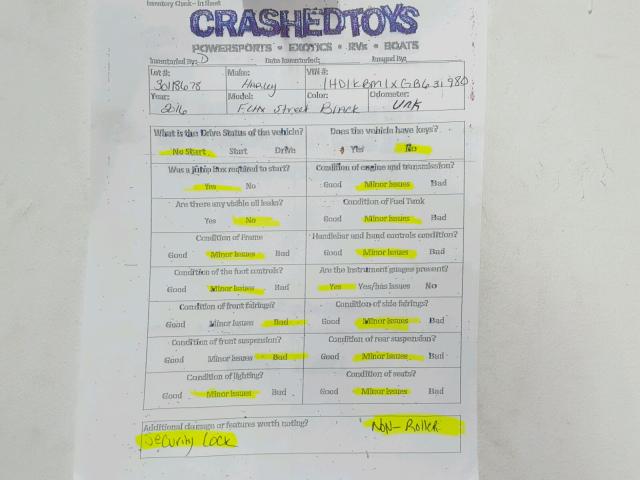 Inventory Check-In Sheet
CRASHEDTOYS
POWERSPORTS • EXOTICS • RVs • BOATS
Inventoried By: D Date Inventoried: Imaged By:
Lot #: Make: VIN #:
30118678 Harley 1HD1KBM1XGB631980
Year: Model: Color: Odometer:
2016 FLHX Street Black Unk
What is the Drive Status of the vehicle? Does the vehicle have keys?
No Start Start Drive Yes No
Was a jump box required to start? Condition of engine and transmission?
Yes No Good Minor Issues Bad
Are there any visible oil leaks? Condition of Fuel Tank
Yes No Good Minor Issues Bad
Condition of Frame Handlebar and hand controls condition?
Good Minor Issues Bad Good Minor Issues Bad
Condition of the foot controls? Are the instrument gauges present?
Good Minor Issues Bad Yes Yes/has Issues No
Condition of front fairings? Condition of side fairings?
Good Minor Issues Bad Good Minor Issues Bad
Condition of front suspension? Condition of rear suspension?
Good Minor Issues Bad Good Minor Issues Bad
Condition of lighting? Condition of seats?
Good Minor Issues Bad Good Minor Issues Bad
Additional damage or features worth noting? Non-Roller
Security Lock